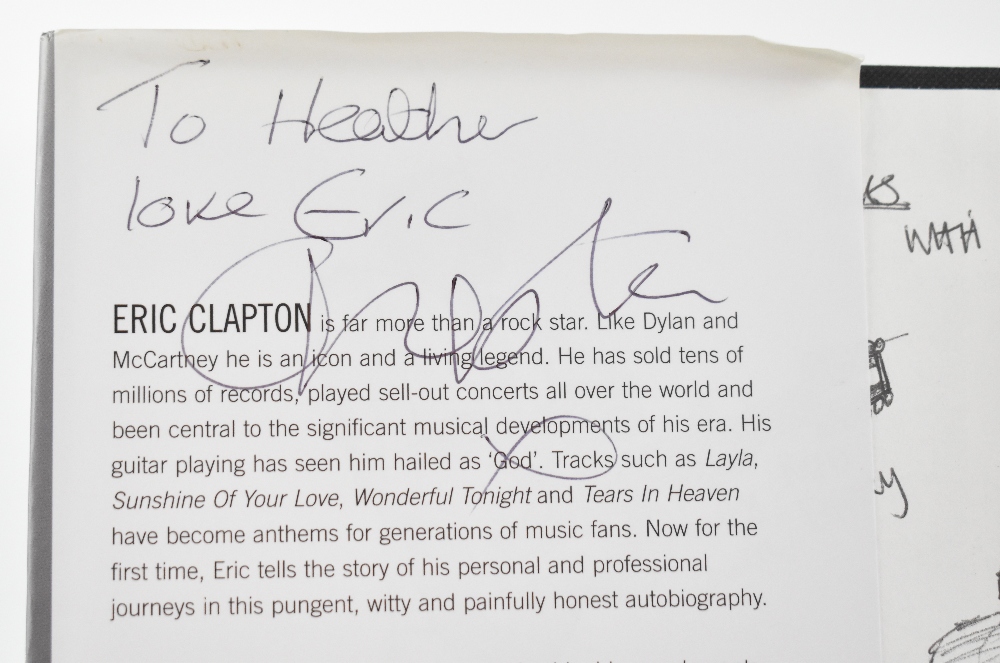 To Heather
love Eric
Clapton
ERIC CLAPTON is far more than a rock star. Like Dylan and
McCartney he is an icon and a living legend. He has sold tens of
millions of records, played sell-out concerts all over the world and
been central to the significant musical developments of his era. His
guitar playing has seen him hailed as ‘God’. Tracks such as Layla,
Sunshine Of Your Love, Wonderful Tonight and Tears In Heaven
have become anthems for generations of music fans. Now for the
first time, Eric tells the story of his personal and professional
journeys in this pungent, witty and painfully honest autobiography.
WITH